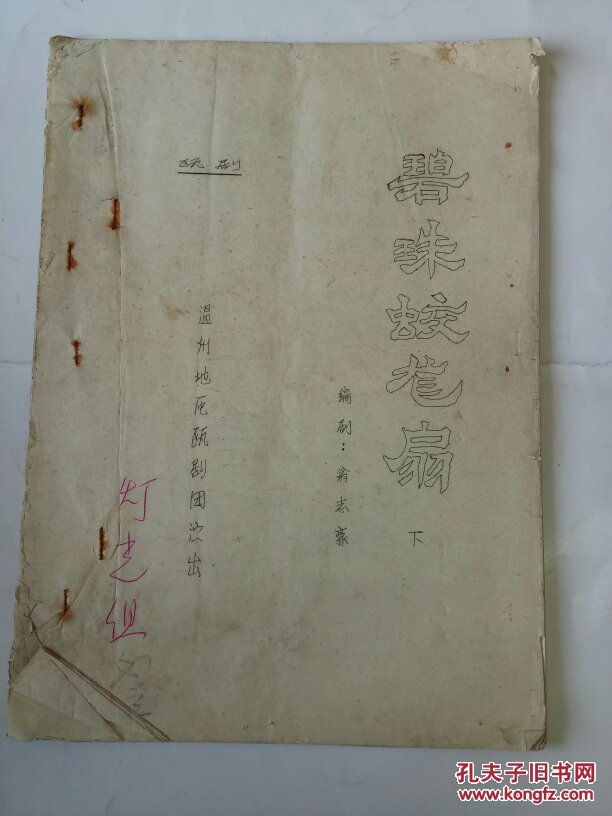 碧珠蛟龙扇
下
编剧：翁志豪
瓯剧
温州地区瓯剧团演出
灯光组
孔夫子旧书网
www.kongfz.com